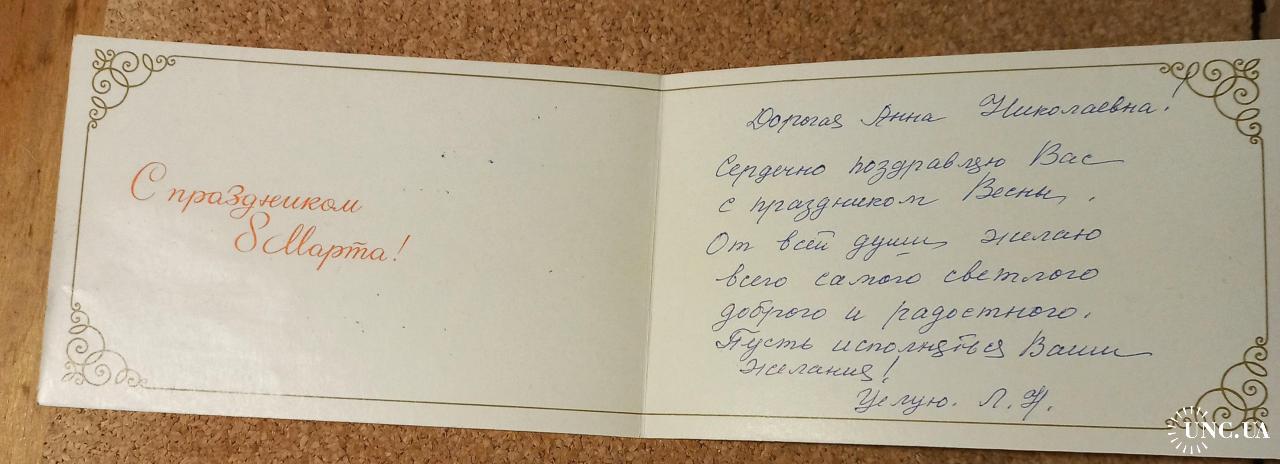 С праздником
8 Марта!
Дорогая Анна Николаевна!
Сердечно поздравляю Вас
с праздником Весны.
От всей души желаю
всего самого светлого
доброго и радостного.
Пусть исполнятся Ваши
желания!
Целую. Л. Н.
UNC.UA